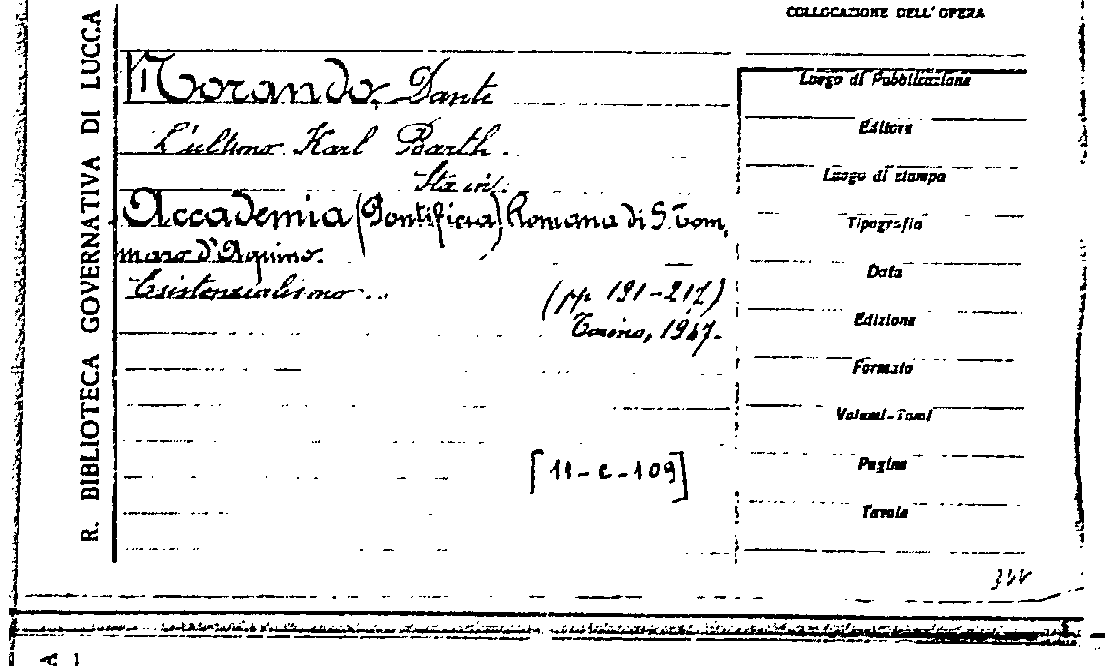 COLLOCAZIONE DELL'OPERA
R. BIBLIOTECA GOVERNATIVA DI LUCCA
Morando, Dante
L'ultimo Karl Barth.
Sta in:
Accademia (Pontificia) Romana di S. Tom,
maso d'Aquino.
Esistenzialismo...
(pp 191-217)
Torino, 1947.
[11-c-109]
Luogo di Pubblicazione
Editore
Luogo di stampa
Tipografia
Data
Edizione
Formato
Volumi-Tomi
Pagine
Tavole
A